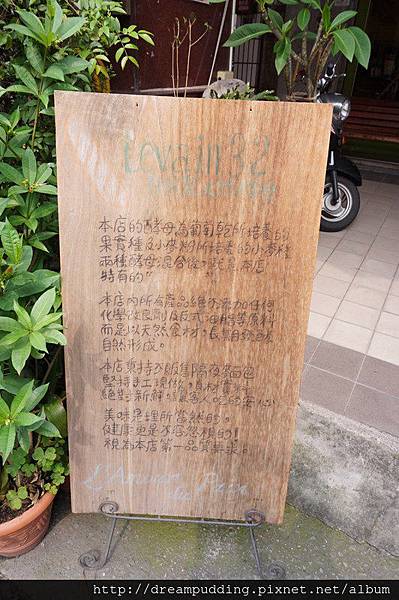 Levain 32
本店的酵母為葡萄乾所培養的
果實種及小麥粉所培養的小麥種
兩種酵母混合後,就是本店
特有的"
本店內所有產品絕不添加任何
化學改良劑及反式油脂等原料
而是以天然食材,長
自然形成。
本店秉持不販售隔夜麵包
堅持手工現做。食材實料
絕對新鮮 客人吃的安心
美味是理所當然的。
健康更是不容忽視的!
視為本店第一品質與
L'Amour du Pain
http://dreampudding.pixnet.net/album